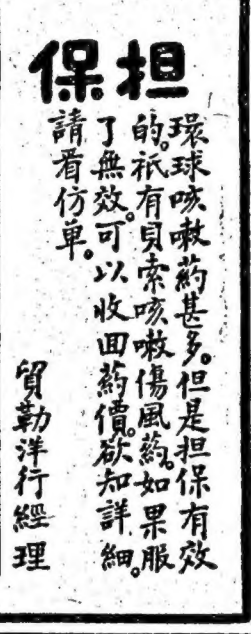 担保
環球咳嗽葯甚多。但是担保有效
的。祇有貝索咳嗽傷風葯。如果服
了無效。可以收回葯價。欲知詳細。
請看仿單。
貿勒洋行經理